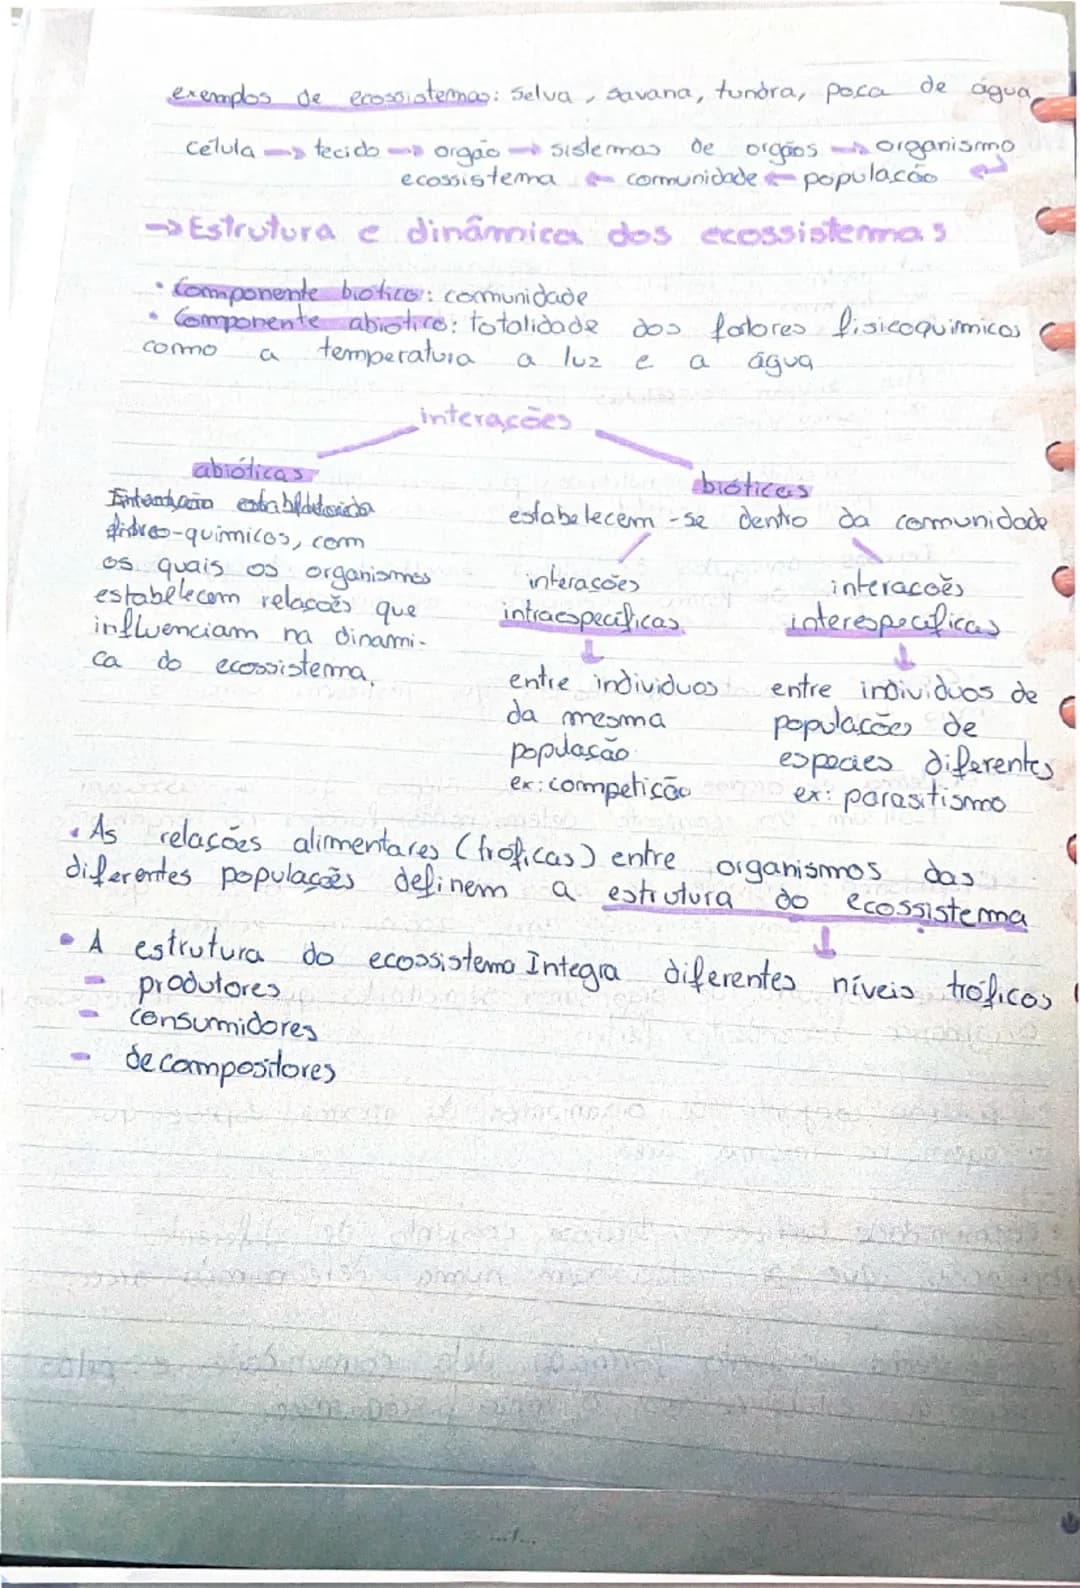 exemplos de ecossistemas: selva, savana, tundra, poca de água
célula → tecido → orgão → sistemas de orgãos → organismo
ecossistema ← comunidade ← população
→ Estrutura e dinâmica dos ecossistemas
• Componente biotico: comunidade
• Componente abiotico: totalidade dos fatores fisicoquimicos
como a temperatura a luz e a água
interações
abióticas
bióticas
estabelecem-se dentro da comunidade
-quimicos, com
os quais os organismos
estabelecem relacoẽs que
influenciam na dinami-
ca do ecossistema.
interacoẽs
intraespecificas
entre individuos
da mesma
população
ex: competição
interacoẽs
interespecificas
entre individuos de
populacoẽs de
especies diferentes
ex: parasitismo
• As relações alimentares (tróficas) entre organismos das
diferentes populações definem a estrutura do ecossistema
• A estrutura do ecossistema Integra diferentes níveis tróficos
- produtores
- consumidores
- decompositores